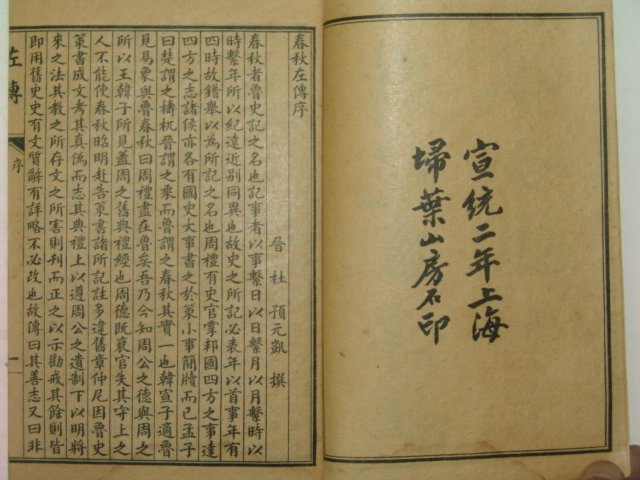 宣統二年上海
埽葉山房石印
春秋左傳序
晉 杜 預元凱 撰
春秋者魯史記之名也記事者以事繫日以日繫月以月繫時以
時繫年所以紀遠近別同異也故史之所記必表年以首事年有
四時故錯舉以為所記之名也周禮有史官掌邦國四方之事達
四方之志諸侯亦各有國史大事書之於策小事簡牘而已孟子
曰楚謂之檮杌晉謂之乘而魯謂之春秋其實一也韓宣子適魯
見易象與魯春秋曰周禮盡在魯矣吾乃今知周公之德與周之
所以王韓子所見蓋周之舊典禮經也周德既衰官失其守上之
人不能使春秋昭明赴告策書諸所記註多違舊章仲尼因魯史
策書成文考其真偽而志其典禮上以遵周公之遺制下以明將
來之法其教之所存文之所害則刊而正之以示勸戒其餘則皆
即用舊史史有文質辭有詳略不必改也故傳曰其善志又曰非
左傳
序
一